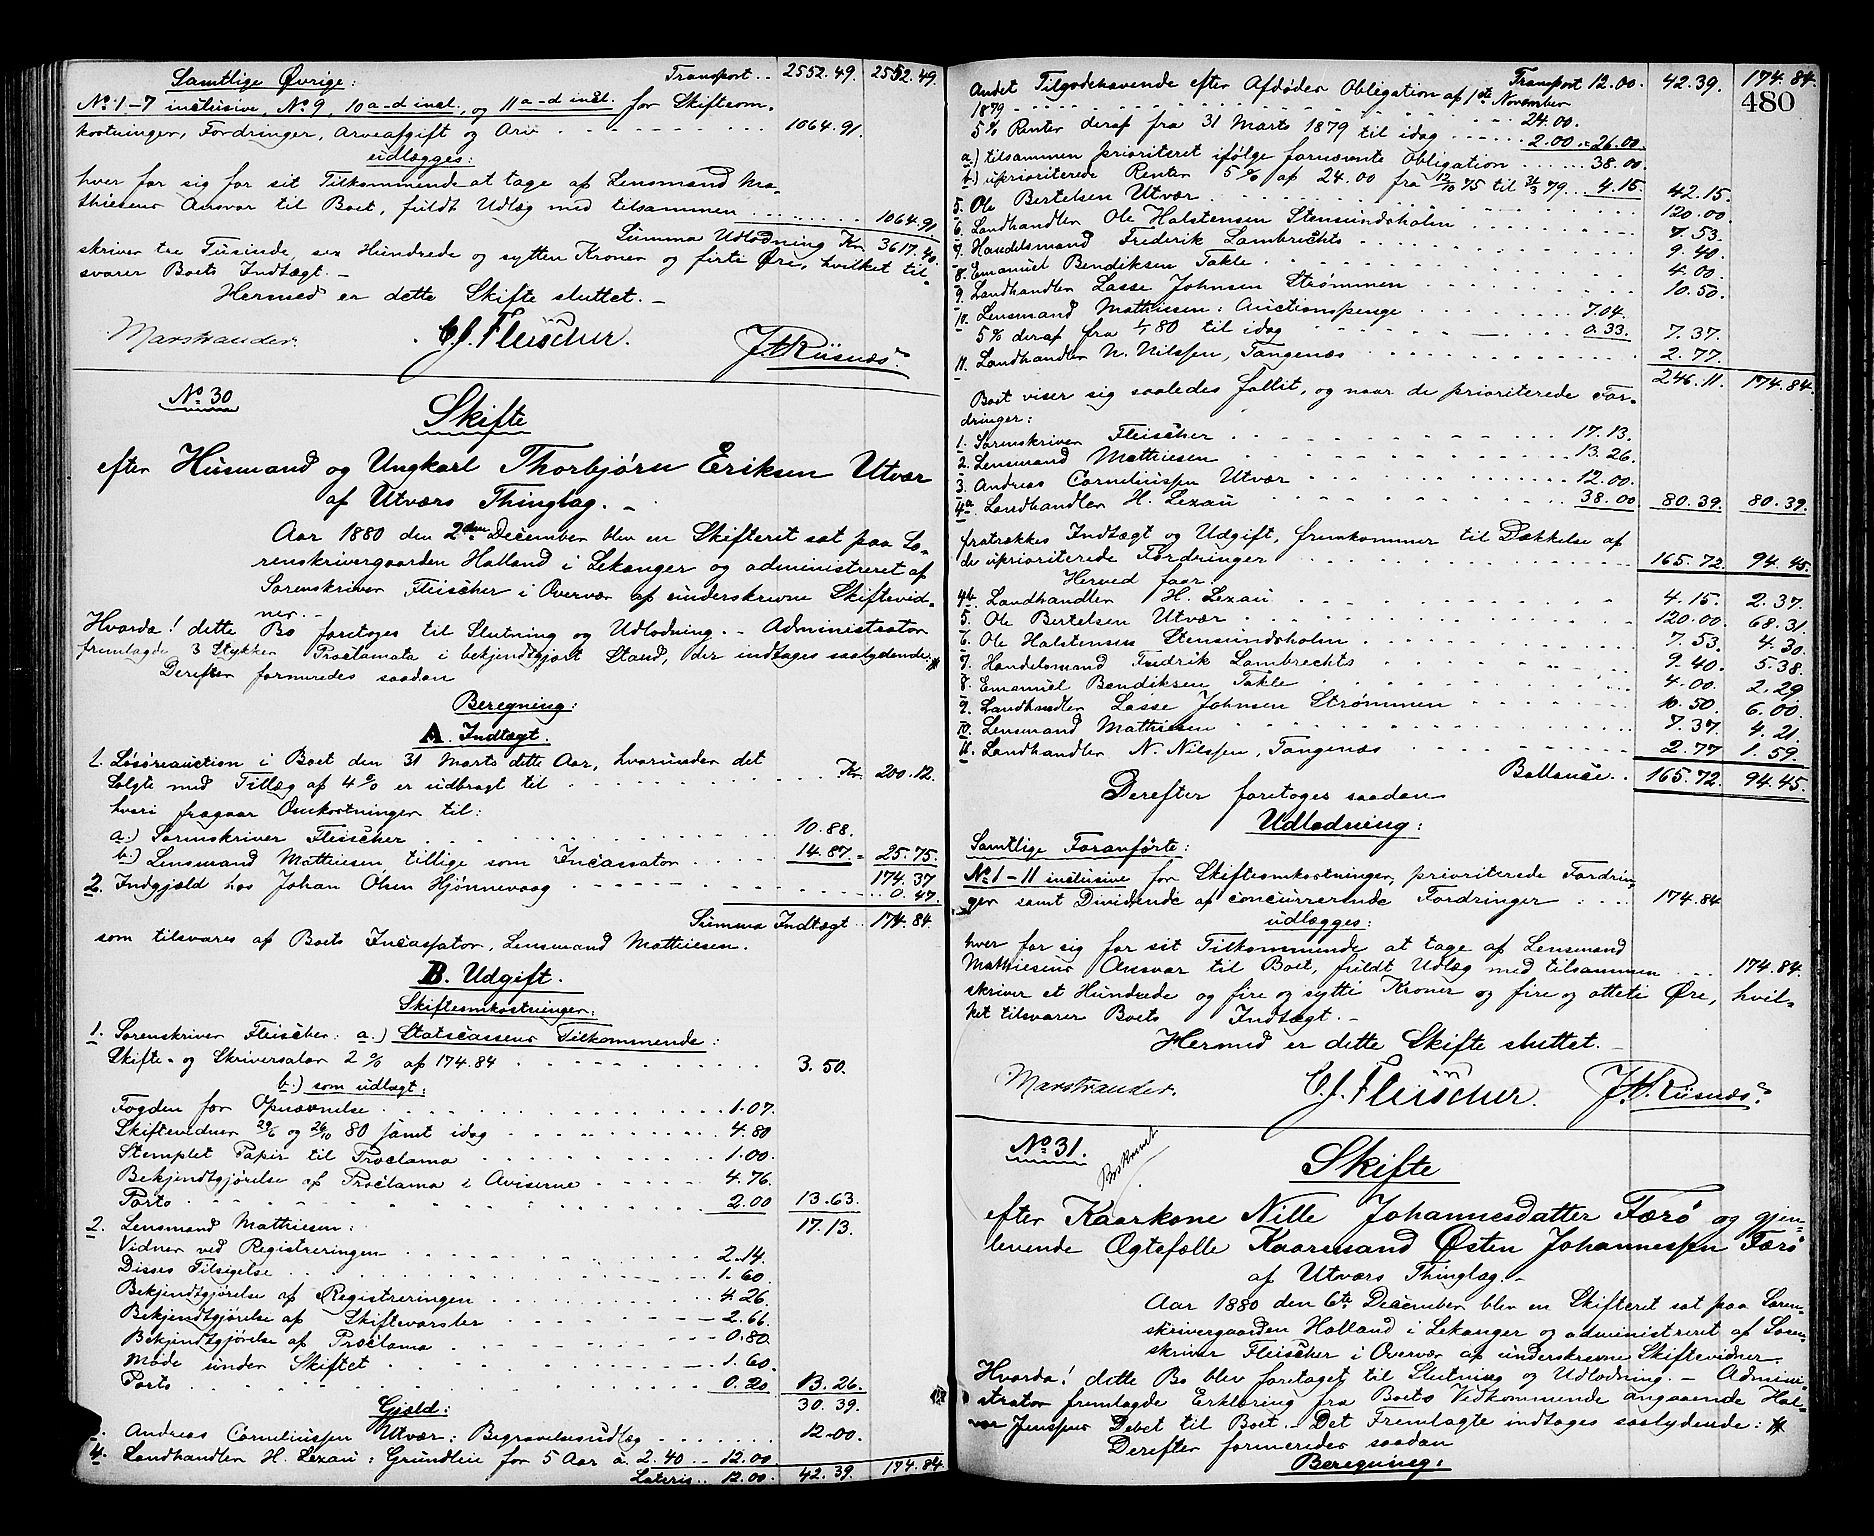 Samtlige Øvrige: Transport.. 2552.49. 2552.49.
No 1-7 inclusive, No 9, 10 a-d incl., og 11 a-d incl. for Skifteom-
kostninger, Fordringer, Arveafgift og Arv 1064.91.
udlægges:
hver for sig for sit Tilkommende at tage af Lensmand Ma-
thiesens Ansvar til Boet, fuldt Udlæg med tilsammen 1064.91
Summa Udlodning Kr. 3617.40
skriver tre Tusinde sex Hundrede og sytten Kroner og firti Øre, hvilket til-
svarer Boets Indtægt.-
Hermed er dette Skifte sluttet.-
Marstrander. C. J. Fleischer. J. A. Riisnæs.
No 30
Skifte
efter Husmand og Ungkarl Thorbjørn Eriksen Utvær
af Utværs Thinglag.-
Aar 1880 den 2den December blev en Skifteret sat paa So-
renskrivergaarden Holland i Lekanger og administreret af
Sorenskriver Fleischer i Overvær af underskrevne Skiftevid-
ner.-
Hvorda! dette Bo foretoges til Slutning og Udlodning.- Administrator
fremlagde 3 Stykker Proclamata i bekjendtgjort Stand, der indtages saalydende:
Derefter formeredes saadan
Beregning:
A. Indtægt.
1. Løsøreauction i Boet den 31 Marts dette Aar, hvorunder det
Solgte med Tillæg af 4 % er udbragt til Kr. 200.12.
hvori fragaar Omkostninger til:
a.) Sorenskriver Fleischer 10.88.
b.) Lensmand Mathiesen tillige som Incassator 14.87. = 25.75.
174.37
2. Indgjæld hos Johan Olsen Hjønnevaag 0.47.
Summa Indtægt 174.84.
som tilsvares af Boets Incassator, Lensmand Mathiesen.
B. Udgift.
Skifteomkostninger:
1. Sorenskriver Fleischer: a.) Statscassens Tilkommende:
Skifte- og Skriversalær 2 % af 174.84 3.50.
b.) som udlagt:
Fogden for Opnævnelse 1.07.
Skiftevidner 29/6 og 26/10 80 samt idag 4.80
Stemplet Papir til Proclama 1.00.
Bekjendtgjørelse af Proclama i Aviserne 4.76.
Porto 2.00 13.63.
17.13.
2. Lensmand Mathiesen:
Vidner ved Registreringen 2.14.
Disses Tilsigelse 1.60.
Bekjendtgjørelse af Registreringen 4.26.
Bekjendtgjørelse af Skiftevarsler 2.66.
Bekjendtgjørelse af Proclama 0.80.
Møde under Skiftet 1.60.
Porto 0.20 13.26.
30.39.
Gjæld:
Andreas Corneliussen Utvær: Begravelsesudlæg 12.00.
4. Landhandler H. Lexau: Grundleie for 5 Aar a 2.40 12.00
Lateris.. 12.00. 42.39. 174.84
Transport 12.00. 42.39. 174.84.
480
Andet Tilgodehavende efter Afdødes Obligation af 1ste November
1879 24.00.
5 % Renter deraf fra 31 Marts 1879 til idag 2.00 = 26.00.
a.) tilsammen prioriteret ifølge fornævnte Obligation 38.00.
b.) uprioriterede Renter 5 % af 24.00 fra 12/10 75 til 31/3 79 4.15. 42.15.
5. Ole Bertelsen Utvær 120.00.
6. Landhandler Ole Halstensen Stensundsholm 7.53.
7. Handelsmand Frederik Lambrechts 9.40.
8. Emanuel Bendiksen Takle 4.00.
9. Landhandler Lasse Johnsen Strømmen 10.50.
10. Lensmand Mathiesen: Auctionspenge 7.04.
5 % deraf fra 1/1 80 til idag 0.33. 7.37.
11. Landhandler N. Nilssen, Tangenæs 2.77.
246.11. 174.84.
Boet viser sig saaledes fallit, og naar de prioriterede For-
dringer:
1. Sorenskriver Fleischer 17.13.
2. Lensmand Mathiesen 13.26.
3. Andreas Corneliussen Utvær 12.00.
4a. Landhandler H. Lexau 38.00 80.39. 80.39.
fratrækkes Indtægt og Udgift, fremkommer til Dækkelse af
de uprioriterede Fordringer 165.72. 94.45.
Herved faar:
4b. Landhandler H. Lexau 4.15. 2.37.
5. Ole Bertelsen Utvær 120.00. 68.31
6. Ole Halstensen Stensundsholm 7.53. 4.30.
7. Handelsmand Fredrik Lambrechts 9.40. 5.38.
8. Emanuel Bendiksen Takle 4.00. 2.29.
9. Landhandler Lasse Johnsen Strømmen 10.50. 6.00.
10. Lensmand Mathiesen 7.37. 4.21.
11. Landhandler N. Nilssen, Tangenæs 2.77 1.59.
Ballance.. 165.72. 94.45.
Derefter foretoges saadan
Udlodning:
Samtlige Foranførte:
No 1-11 inclusive for Skifteomkostninger, prioriterede Fordrin-
ger samt Dividende af concurrerende Fordringer 174.84
udlægges:
hver for sig for sit Tilkommende at tage af Lensmand
Mathiesens Ansvar til Boet, fuldt Udlæg med tilsammen 174.84.
skriver et Hundrede og fire og sytti Kroner og fire og otteti Øre, hvil-
ket tilsvarer Boets Indtægt.-
Hermed er dette Skifte sluttet.-
Marstrander. C. J. Fleischer. J. A. Riisnæs.
No 31.
Skifte
efter Kaarkone Nille Johannesdatter Færø og gjen-
levende Ægtefælle Kaarmand Østen Johannessen Færø
af Utværs Thinglag.-
Aar 1880 den 6te December blev en Skifteret sat paa Soren-
skrivergaarden Holland i Lekanger og administreret af Soren-
skriver Fleischer i Overvær af underskrevne Skiftevidner.
Hvorda! dette Bo blev foretaget til Slutning og Udlodning.- Admini-
strator fremlagde Erklæring fra Boets Vedkommende angaaende Hal-
vor Jenssens Debet til Boet.- Det Fremlagte indtages saalydende:
Derefter formeredes saadan
Beregning: